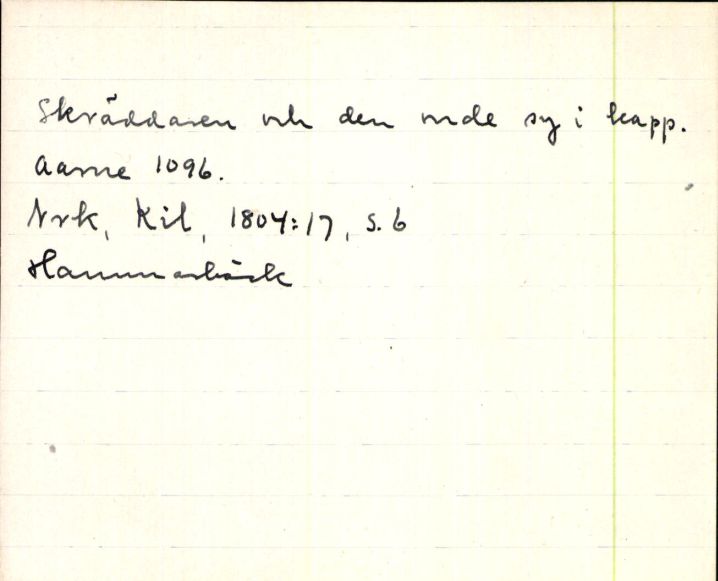 Skräddaren och den onde sy i kapp.
Aarne 1096.
Nrk, Kil, 1804:17, s. 6
Hammarbäck